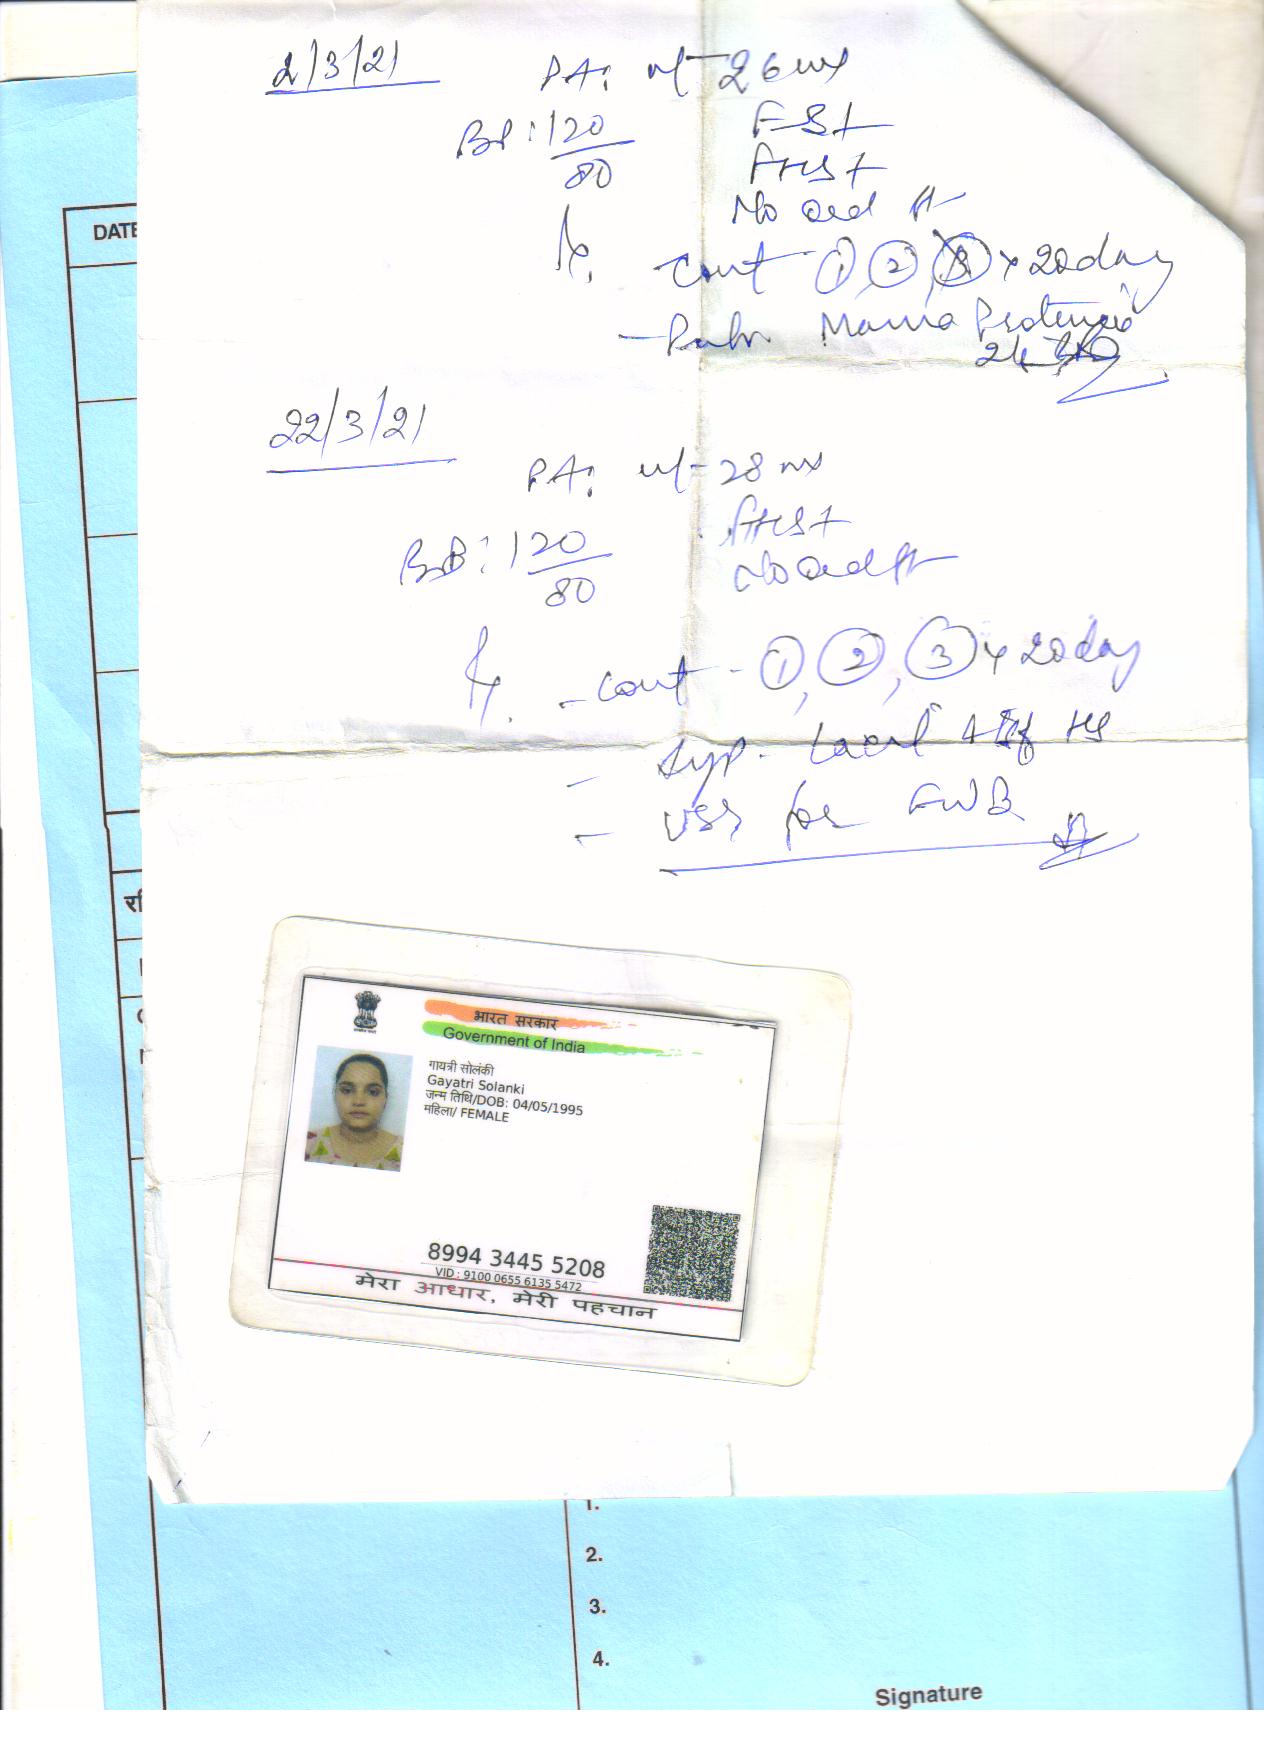 2/3/21
PA: ut-26wx
BP: 120/80
FSt
FHS+
No oed
Rx.
- cont ①, ②, ③ x 20day
- Mama Protenex
22/3/21
PA: ut-28wx
BP: 120/80
FHS+
No oed
Rx.
- cont - ①, ②, ③ x 20day
- Syp. HS
- USG for FWB
DATE
भारत सरकार
Government of India
गायत्री सोलंकी
Gayatri Solanki
जन्म तिथि/DOB: 04/05/1995
महिला/ FEMALE
8994 3445 5208
VID : 9100 0655 6135 5472
मेरा आधार, मेरी पहचान
1.
2.
3.
4.
Signature